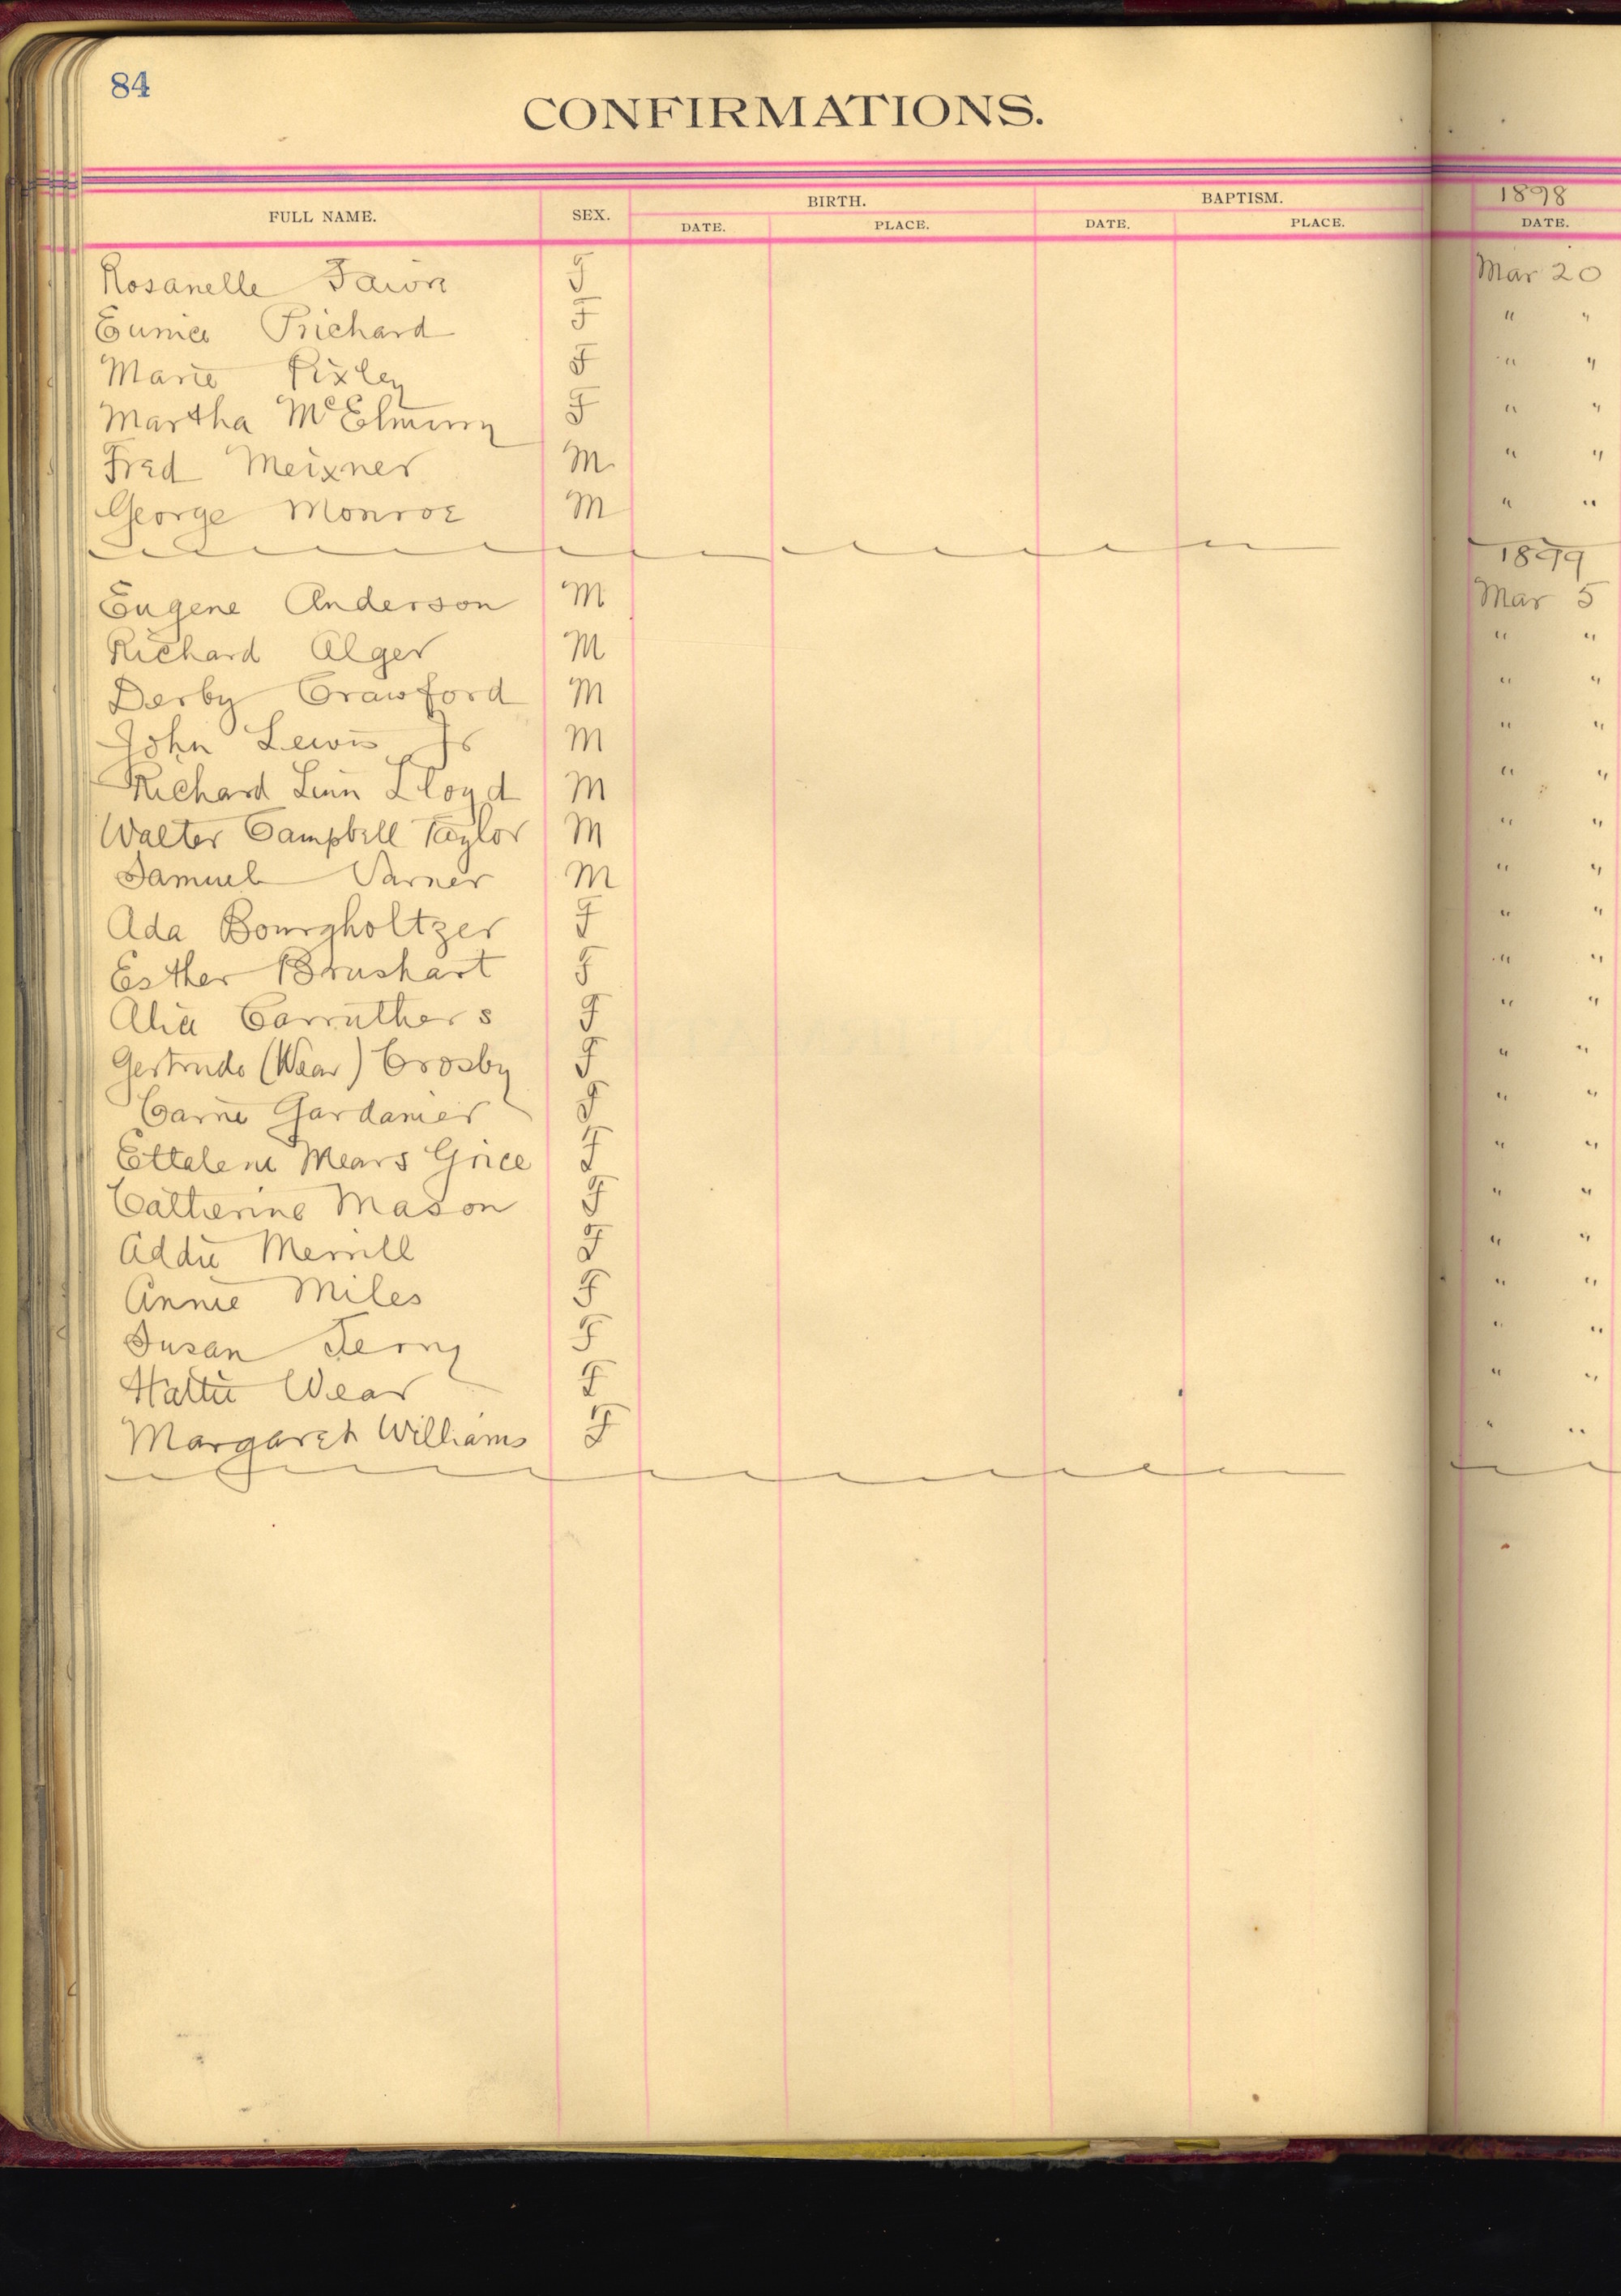 84
CONFIRMATIONS.
FULL NAME. SEX. BIRTH. DATE. PLACE. BAPTISM. DATE. PLACE. 1898 DATE.
Rosanelle F Mar 20
Eunice Prichard F " "
Marie Pixley F " "
Martha McElmurry F " "
Fred Meixner M " "
George Monroe M " "
1899
Eugene Anderson M Mar 5
Richard Alger M " "
Derby Crawford M " "
John Lewis Jr M " "
Richard Linn Lloyd M " "
Walter Campbell Taylor M " "
Samuel Varner M " "
Ada Bourgholtzer F " "
Esther Brushart F " "
Alice Carruthers F " "
Gertrude (Wear) Crosby F " "
Carrie Gardanier F " "
Ettalene Mears Grice F " "
Catherine Mason F " "
Addie Merrill F " "
Annie Miles F " "
Susan Terry F " "
Hattie Wear F " "
Margaret Williams F " "